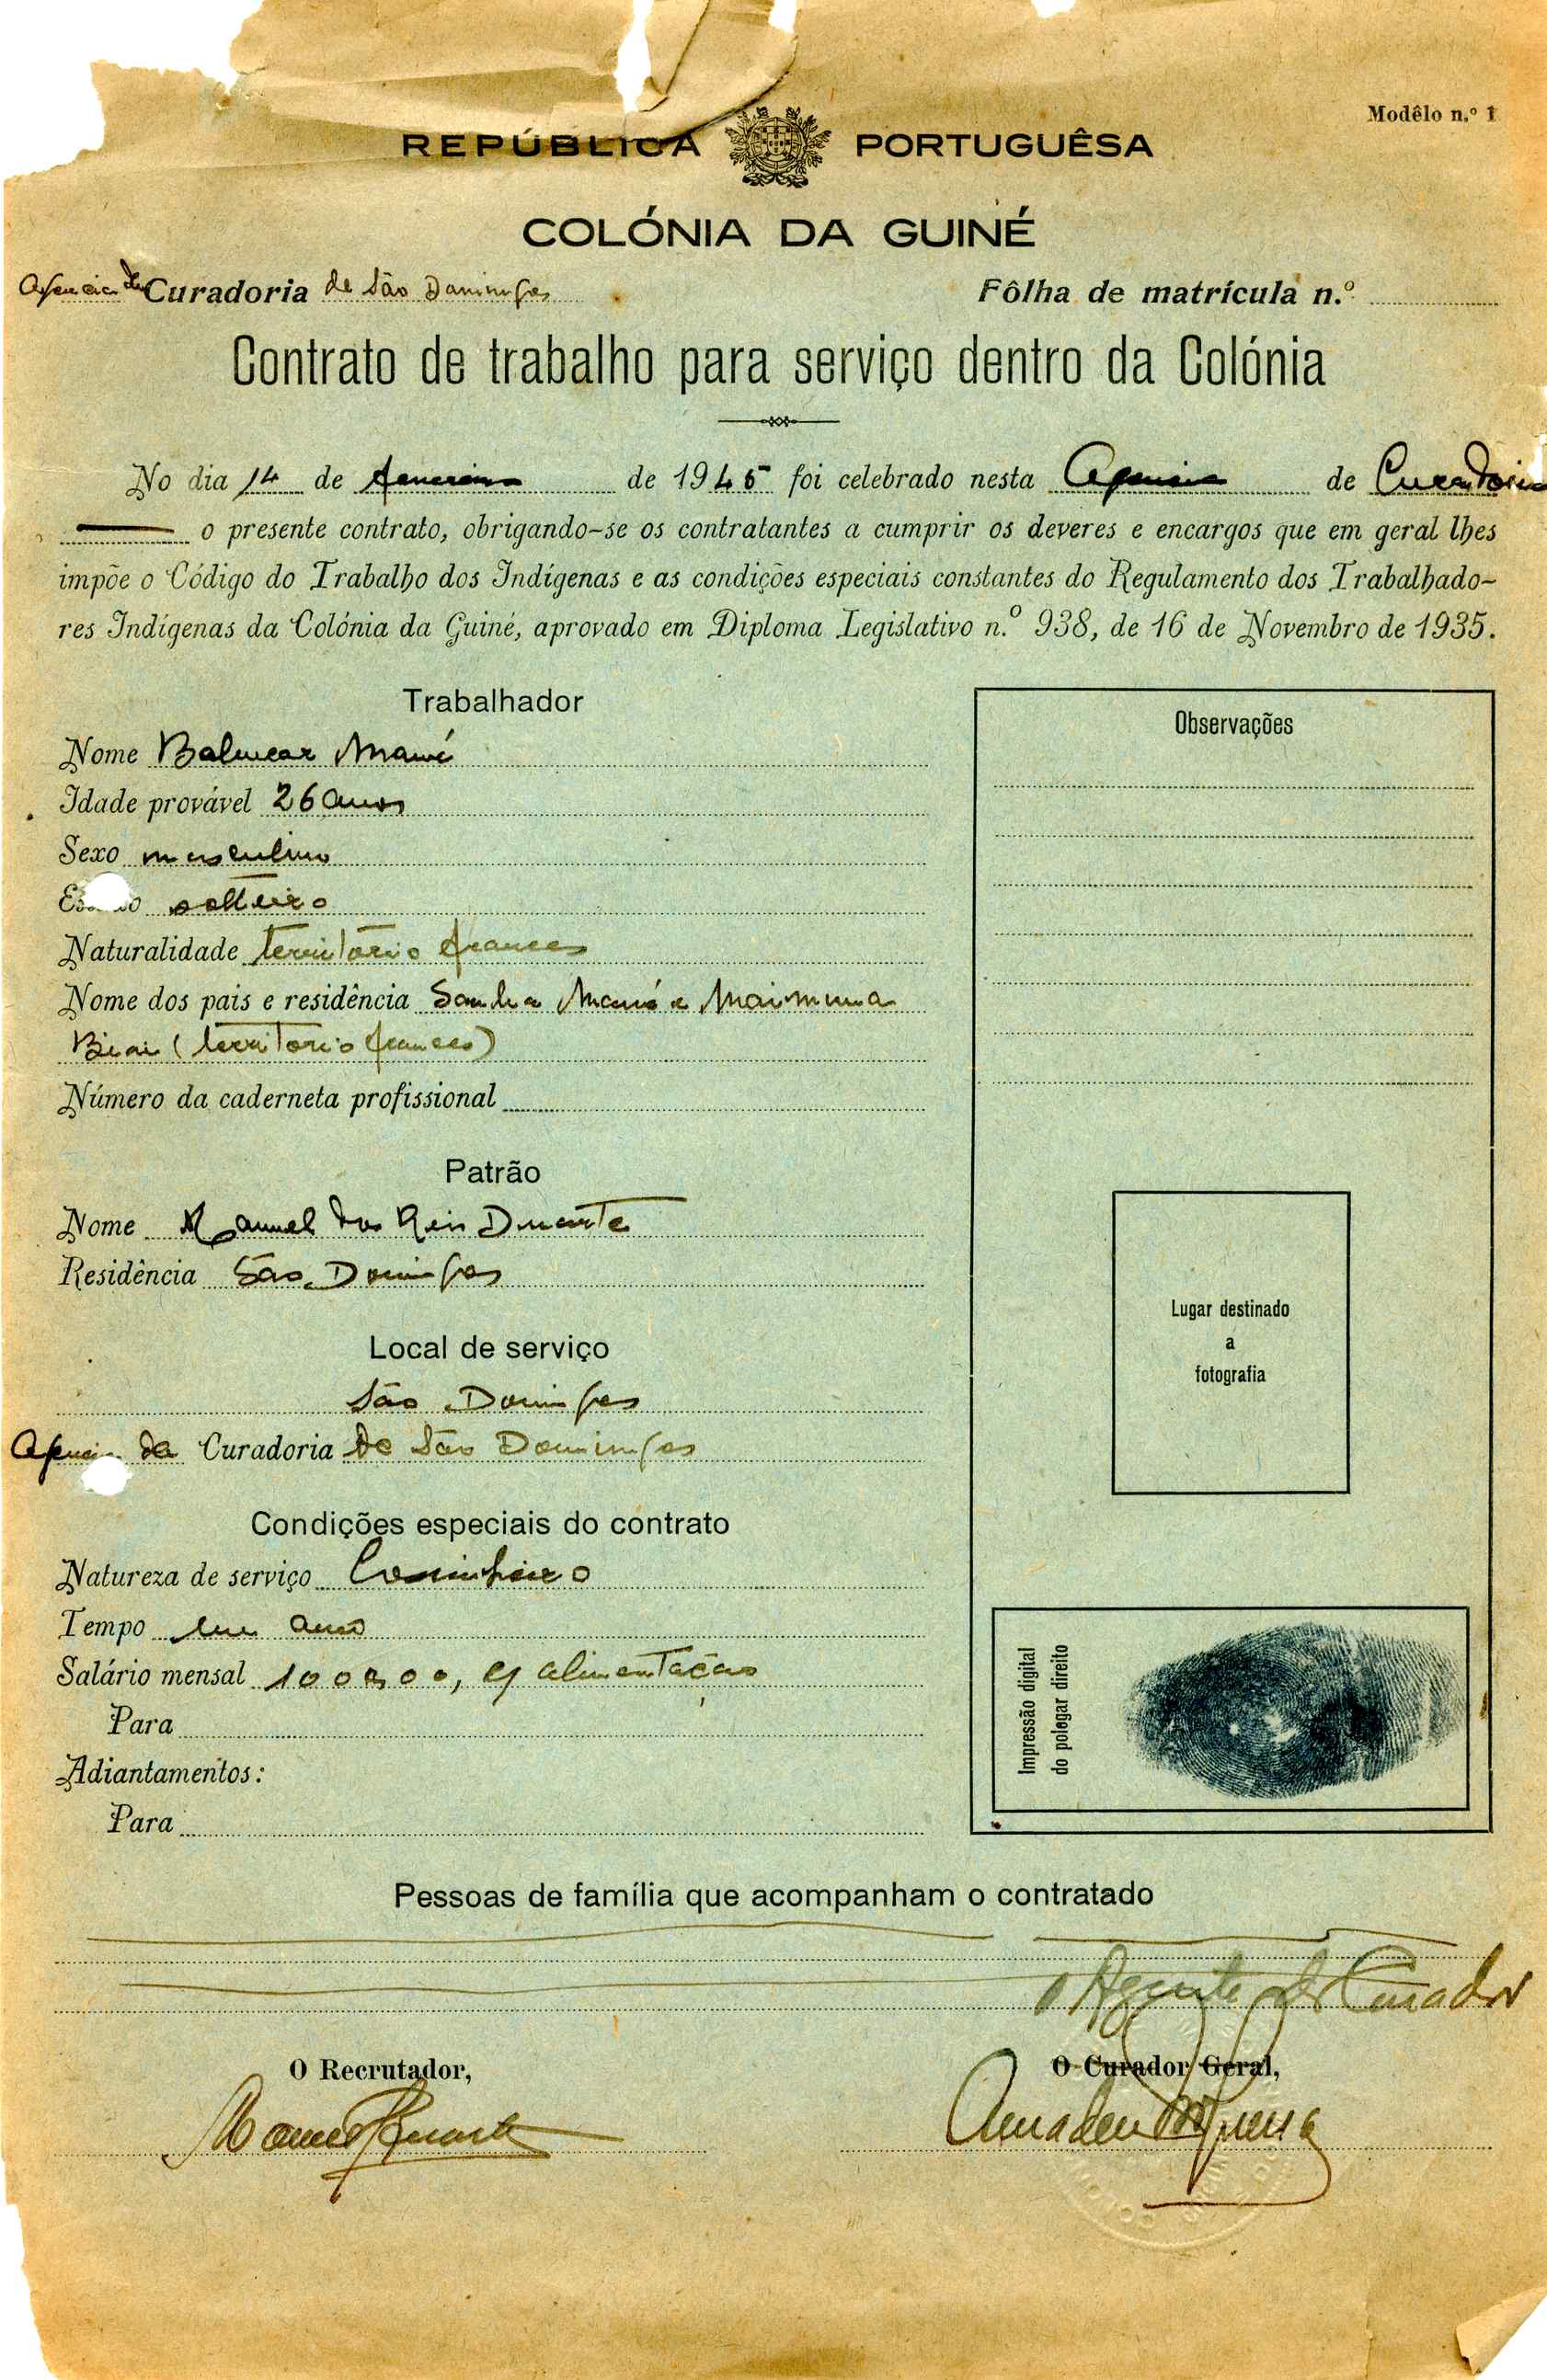 Modêlo n.º 1
REPÚBLICA PORTUGUÊSA
COLÓNIA DA GUINÉ
Agencia da Curadoria de São Domingos Fôlha de matrícula n.º
Contrato de trabalho para serviço dentro da Colónia
No dia 14 de fevereiro de 1945 foi celebrado nesta Agencia de Curadoria
o presente contrato, obrigando-se os contratantes a cumprir os deveres e encargos que em geral lhes
impõe o Código do Trabalho dos Indígenas e as condições especiais constantes do Regulamento dos Trabalhado-
res Indígenas da Colónia da Guiné, aprovado em Diploma Legislativo n.º 938, de 16 de Novembro de 1935.
Trabalhador
Nome Mané
Idade provável 26 anos
Sexo masculino
Estado solteiro
Naturalidade território frances
Nome dos pais e residência Mané e
(territorio frances)
Número da caderneta profissional
Patrão
Nome Manuel dos Reis Duarte
Residência São Domingos
Local de serviço
São Domingos
Agencia da Curadoria de São Domingos
Condições especiais do contrato
Natureza de serviço Cosinheiro
Tempo um ano
Salário mensal 100$00, e alimentação
Para
Adiantamentos:
Para
Observações
Lugar destinado
a
fotografia
Impressão digital
do polegar direito
Pessoas de família que acompanham o contratado
O Agente do Curador
O Recrutador,
O Curador Geral,
Manuel Duarte
Amadeu